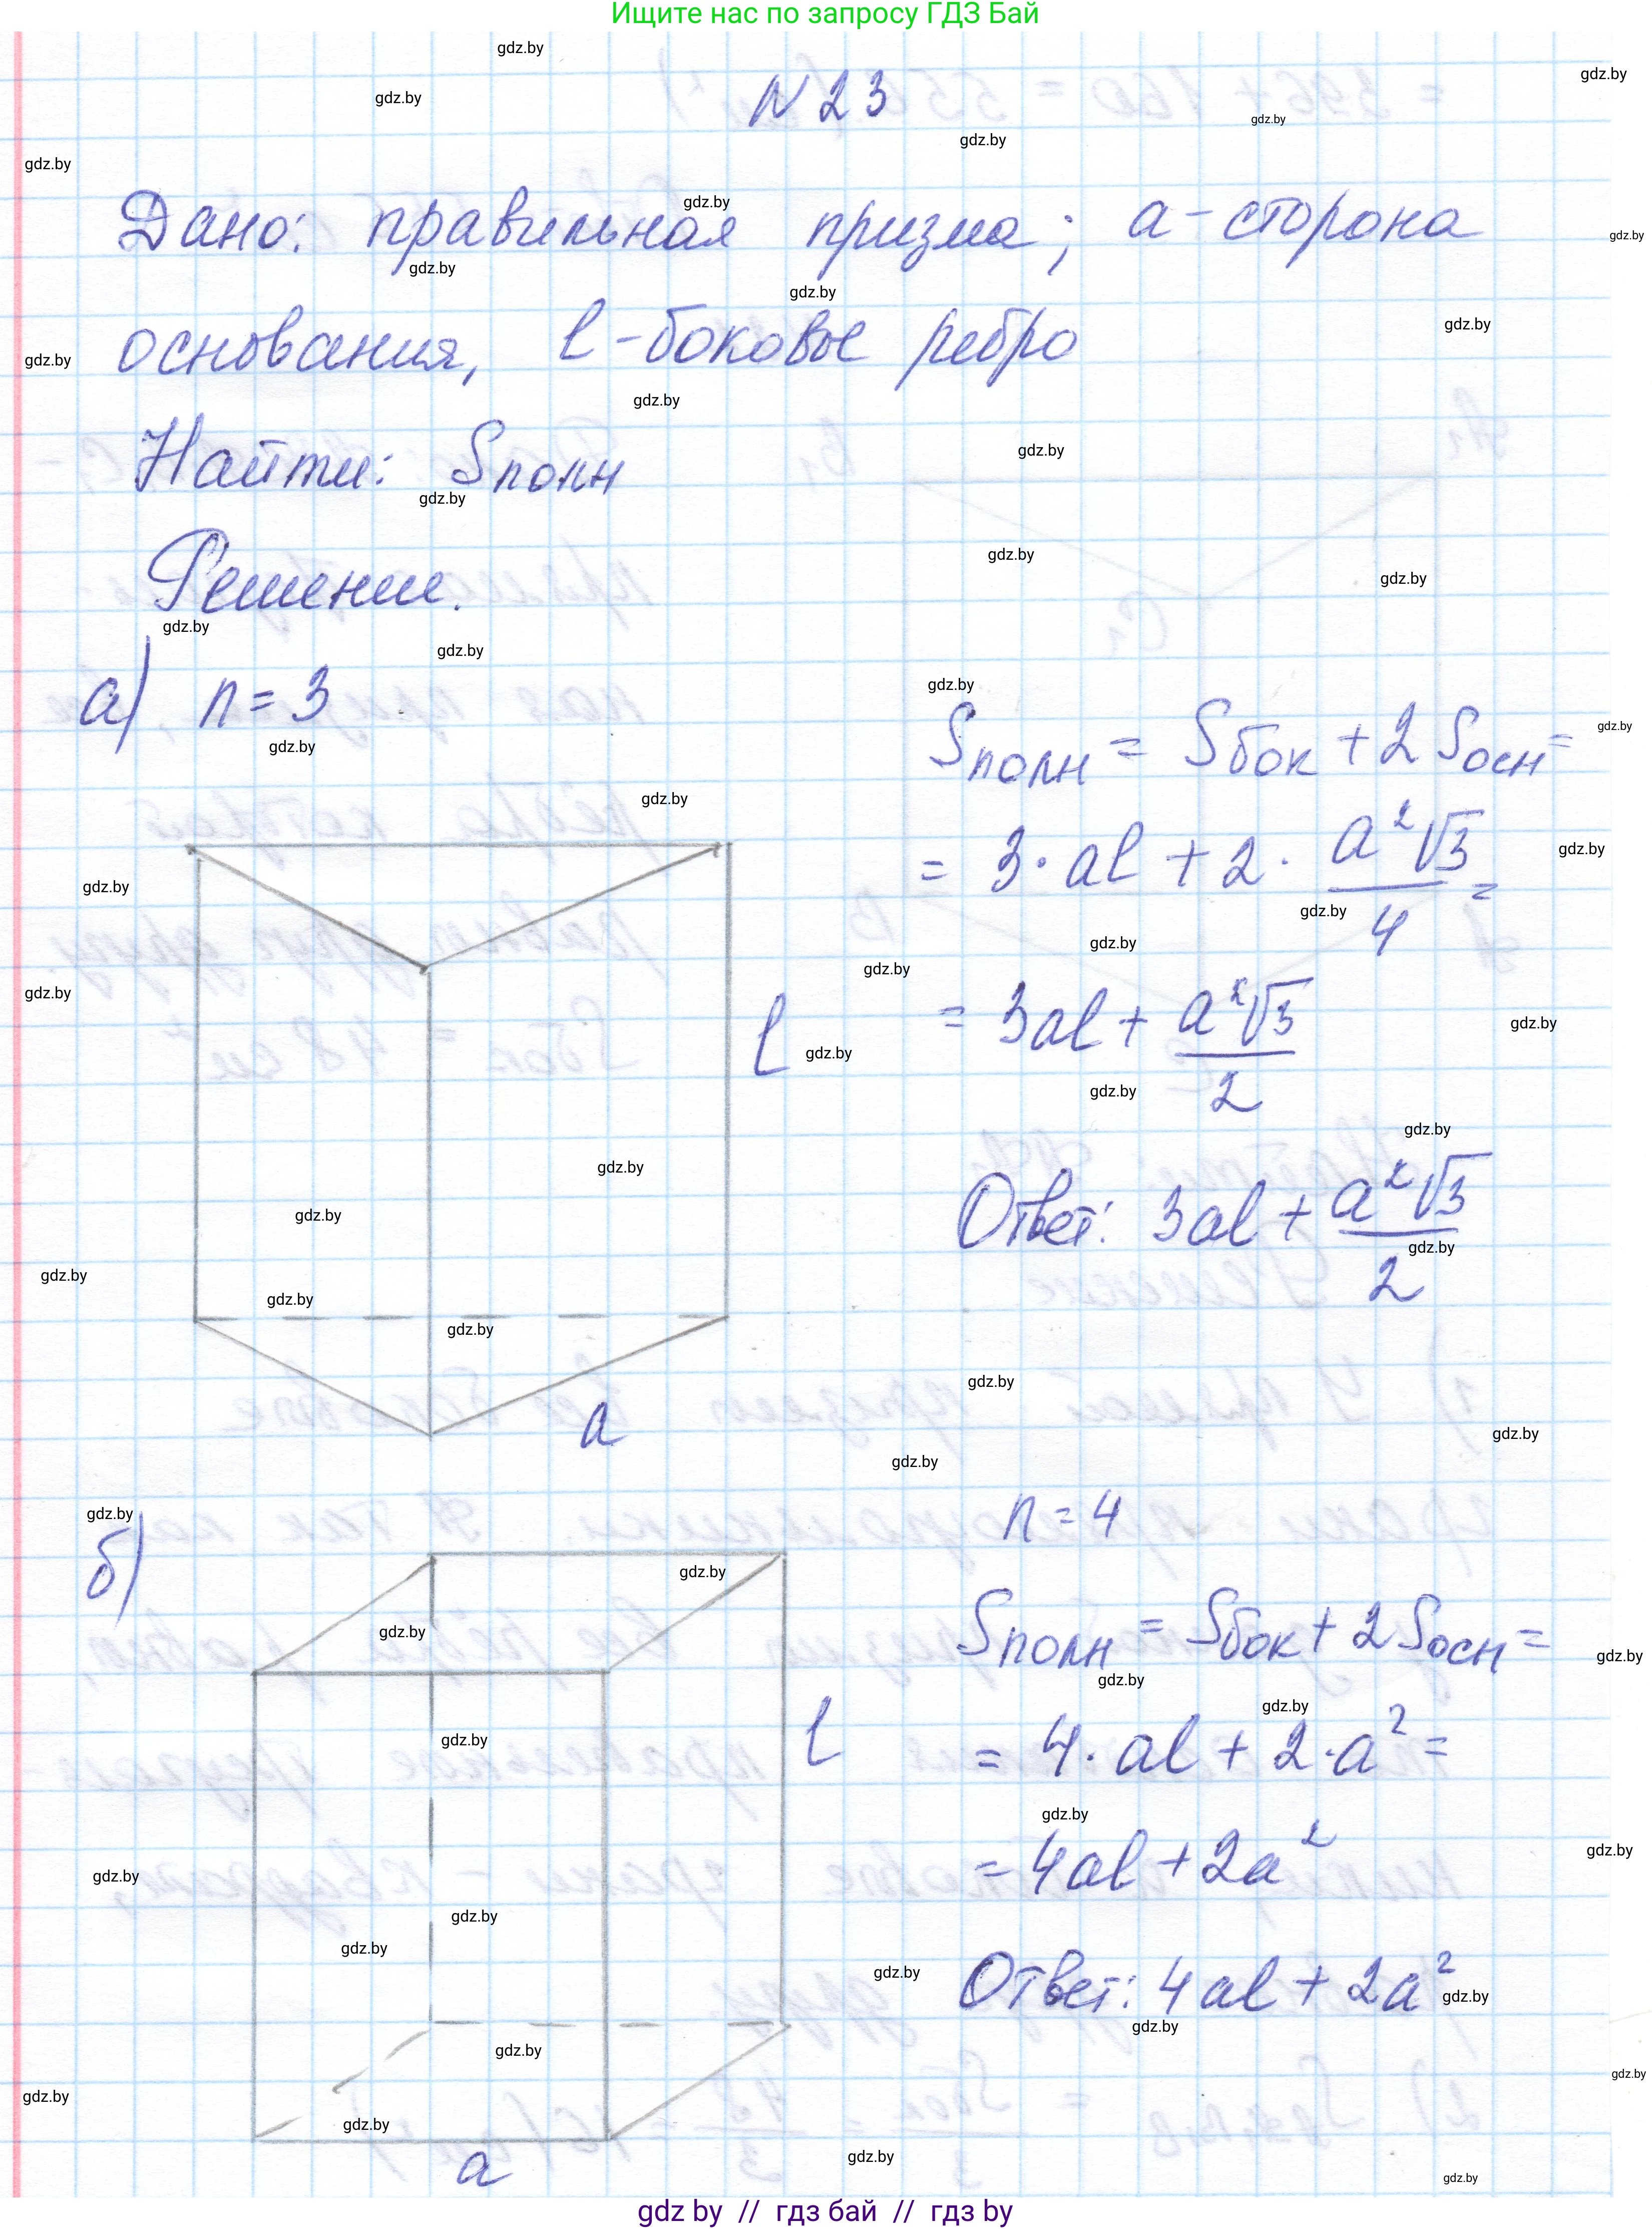 Ищите нас по запросу ГДЗ Бай
N 23
Дано: правильная призма; a - сторона
основания, l - боковое ребро
Найти: Sполн
Решение.
а) n = 3
Sполн = Sбок + 2 Sосн =
= 3 · al + 2 · a²√3/4 =
= 3al + a²√3/2
l
Ответ: 3al + a²√3/2
a
б)
n = 4
Sполн = Sбок + 2 Sосн =
l
= 4 · al + 2 · a² =
= 4al + 2a²
Ответ: 4al + 2a²
a
gdz by // гдз бай // гдз by